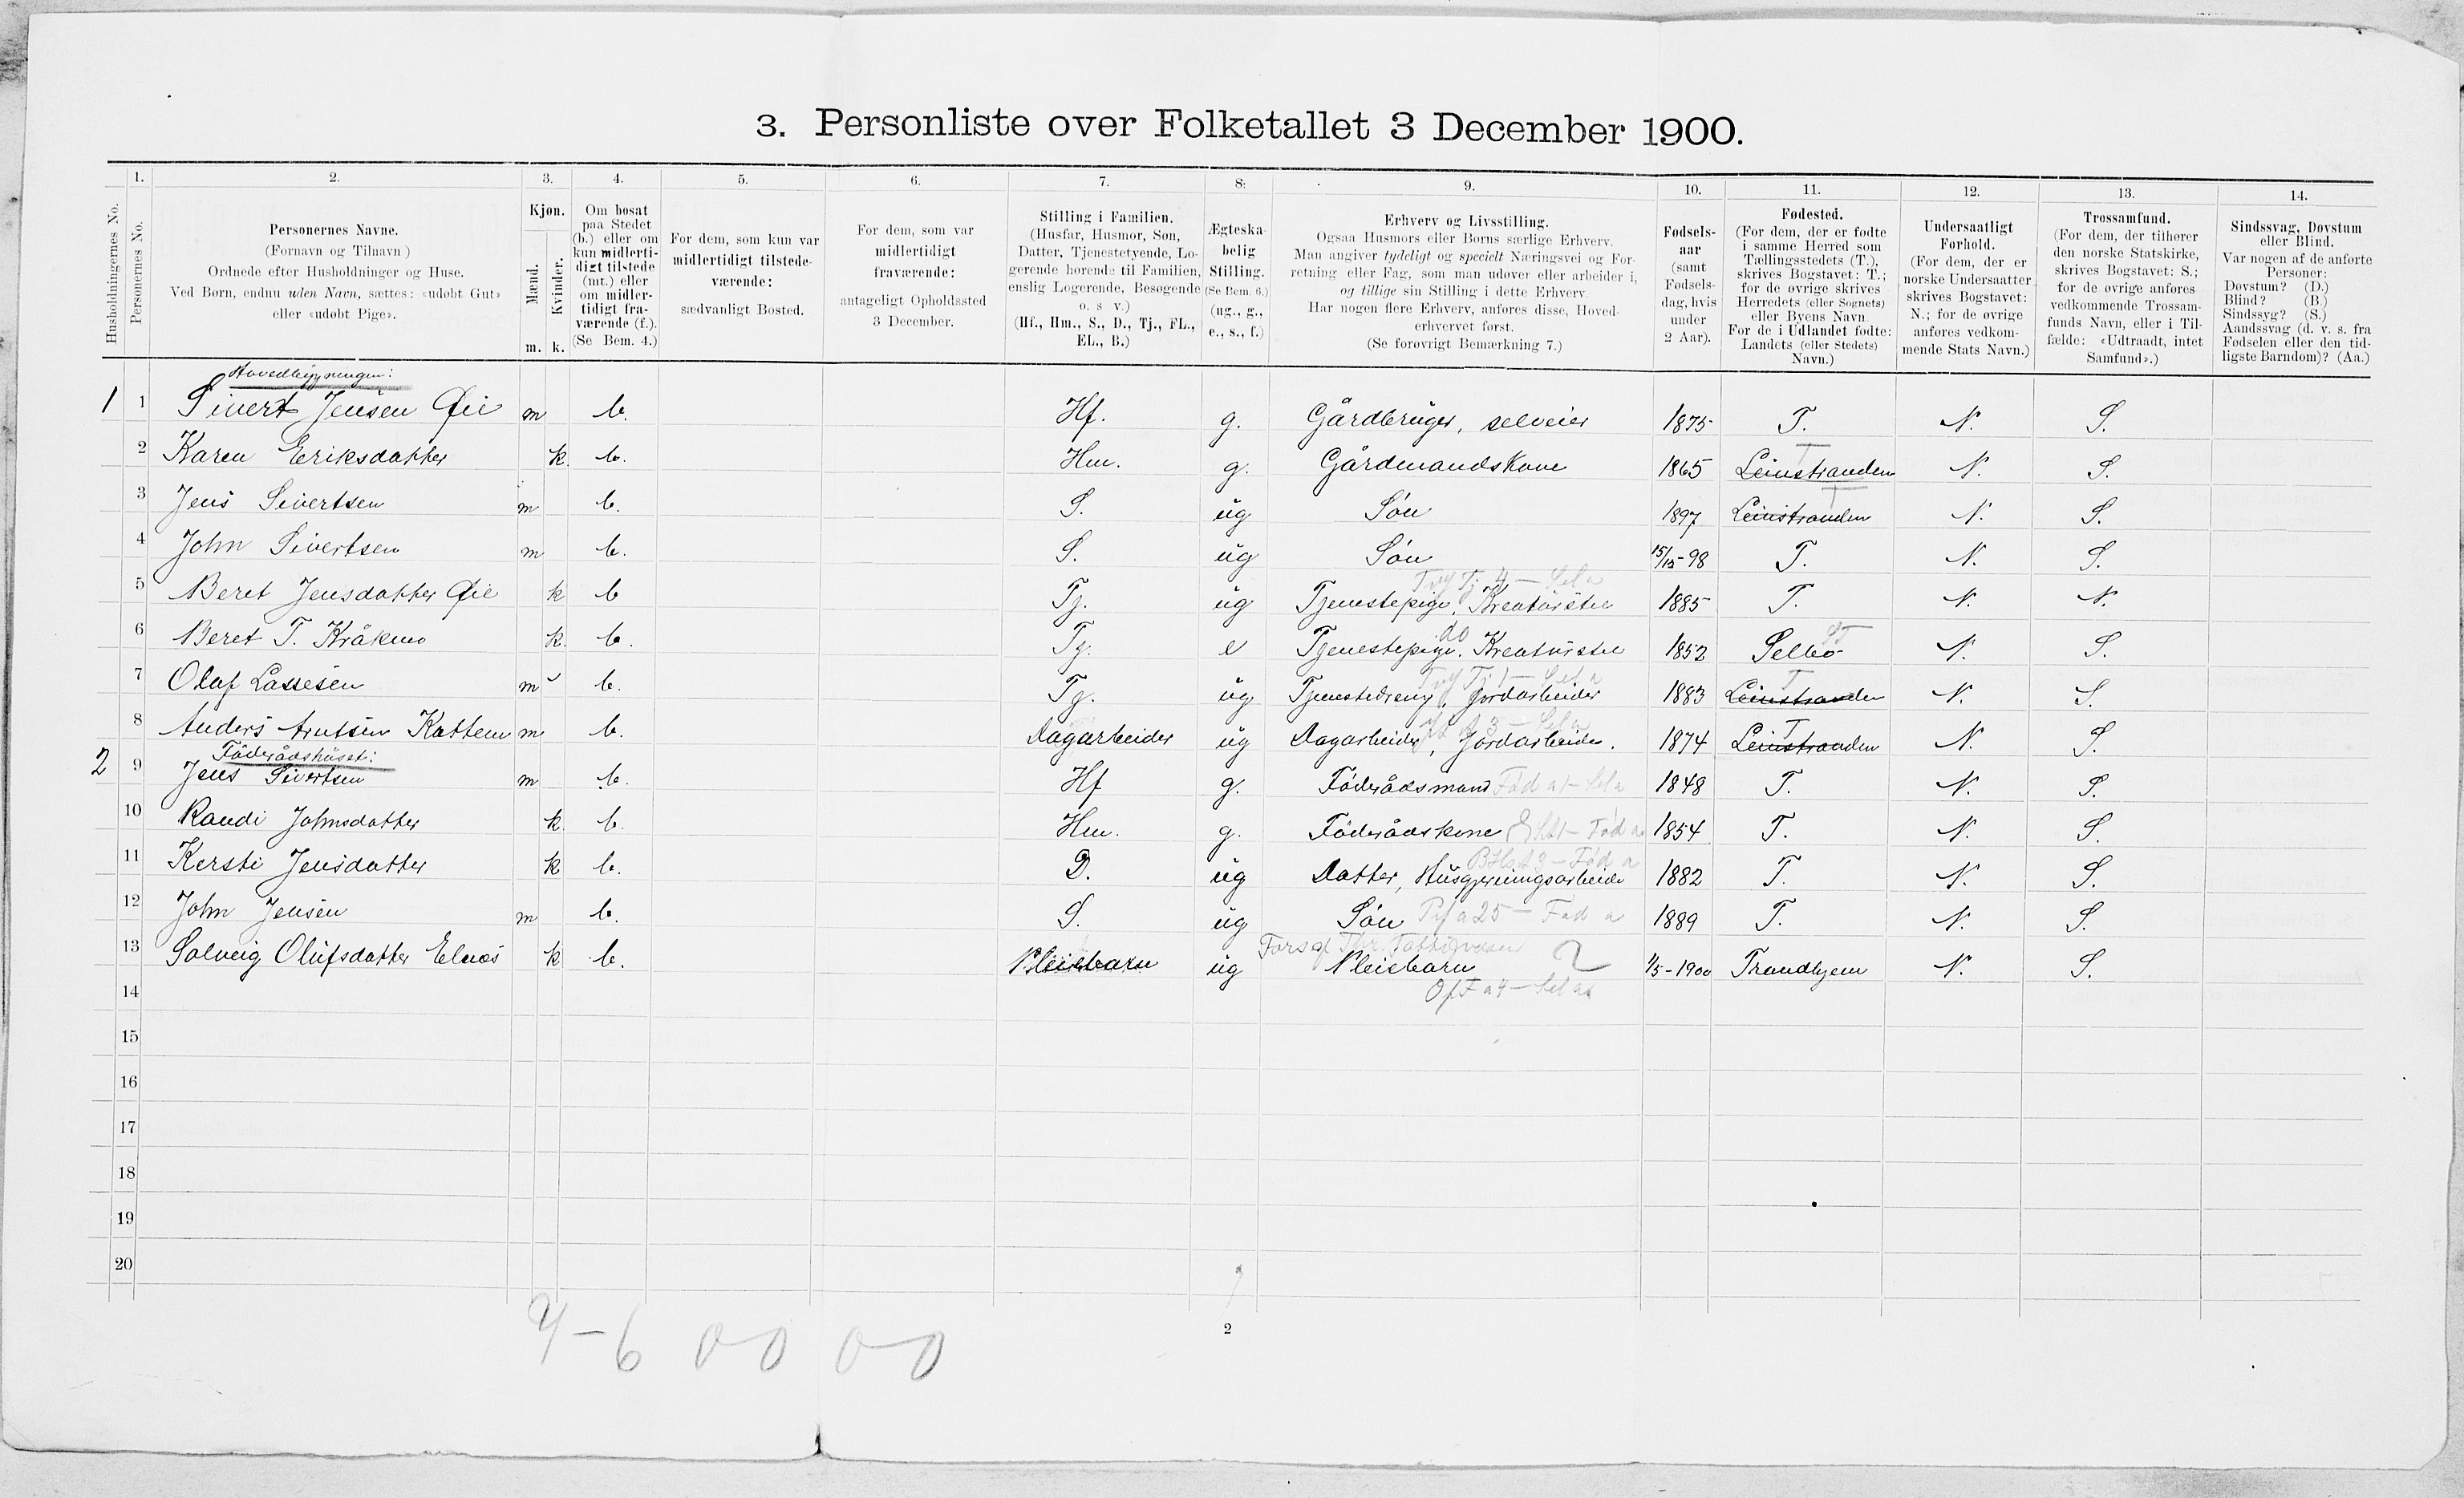 3. Personliste over Folketallet 3 December 1900.
1. 2. 3. 4. 5. 6. 7. 8. 9. 10. 11. 12. 13. 14.
Husholdningernes No.
Personernes No.
Personernes Navne.
(Fornavn og Tilnavn)
Ordnede efter Husholdninger og Huse.
Ved Børn, endnu uden Navn, sættes: «udøbt Gut»
eller «udøbt Pige».
Kjøn.
Mænd.
Kvinder.
m. k.
Om bosat
paa Stedet
(b.) eller om
kun midlerti-
digt tilstede
(mt.) eller
om midler-
tidigt fra-
værende (f.).
(Se Bem. 4.)
For dem, som kun var
midlertidigt tilstede-
værende:
sædvanligt Bosted.
For dem, som var
midlertidigt
fraværende:
antageligt Opholdssted
3 December.
Stilling i Familien.
(Husfar, Husmor, Søn,
Datter, Tjenestetyende, Lo-
gerende hørende til Familien,
enslig Logerende, Besøgende
o. s v.)
(Hf., Hm., S., D., Tj., FL.,
EL., B.)
Ægteska-
belig
Stilling.
(Se Bem. 6.)
(ug., g.,
e., s., f.)
Erhverv og Livsstilling.
Ogsaa Husmors eller Børns særlige Erhverv.
Man angiver tydeligt og specielt Næringsvei og For-
retning eller Fag, som man udøver eller arbeider i,
og tillige sin Stilling i dette Erhverv.
Har nogen flere Erhverv, anføres disse, Hoved-
erhvervet først.
(Se forøvrigt Bemærkning 7.)
Fødsels-
aar
(samt
Fødsels-
dag, hvis
under
2 Aar).
Fødested.
(For dem, der er fødte
i samme Herred som
Tællingsstedets (T.),
skrives Bogstavet: T.;
for de øvrige skrives
Herredets (eller Sognets)
eller Byens Navn.
For de i Udlandet fødte:
Landets (eller Stedets)
Navn.)
Undersaatligt
Forhold.
(For dem, der er
norske Undersaatter
skrives Bogstavet:
N.; for de øvrige
anføres vedkom-
mende Stats Navn.)
Trossamfund.
(For dem, der tilhører
den norske Statskirke,
skrives Bogstavet: S.;
for de øvrige anføres
vedkommende Trossam-
funds Navn, eller i Til-
fælde: «Udtraadt, intet
Samfund».)
Sindssvag, Døvstum
eller Blind.
Var nogen af de anførte
Personer:
Døvstum? (D.)
Blind? (B.)
Sindssyg? (S.)
Aandssvag (d. v. s. fra
Fødselen eller den tid-
ligste Barndom)? (Aa.)
Hovedbygningen:
1 1 Sivert Jensen Øie m b. Hf. g. Gårdbruger, selveier 1875 T. N. S.
2 Karen Eriksdatter k. b. Hm. g. Gårdmandskone 1865 Leinstranden T N. S.
3 Jens Sivertsen m b. S. ug Søn 1897 Leinstranden T N. S.
4 John Sivertsen m b. S. ug Søn 15/12-98 T. N. S.
5 Beret Jensdatter Øie k b Tj. ug Tjenestepige, Kreaturstel 1885 T. N. N.
6 Beret T. Kråkmo k. b. Tj. e Tjenestepige. Kreaturstel do 1852 Selbo ST N. S.
7 Olaf Lassesen m b. Tj. ug Tjenestedreng, Jordarbeider 1883 Leinstranden T N. S.
8 Anders Arntsen Kattem m b. Dagarbeider ug Dagarbeider, Jordarbeider. 1874 Leinstranden T N. S.
Föderådshuset:
2 9 Jens Sivertsen m b. Hf g. Föderådsmand 1848 T. N. S.
10 Randi Johnsdatter k. b. Hm. g. Föderådskone 1854 T. N. S.
11 Kersti Jensdatter k b. D. ug Datter, Husgjerningsarbeide 1882 T. N. S.
12 John Jensen m b. S. ug Søn 1889 T. N. S.
13 Solveig Olufsdatter Elnæs k b. Pleiebarn ug Pleiebarn 2 1/5-1900 Trondhjem N. S.
14
15
16
17
18
19
20
7-6 0-0 0-0
2